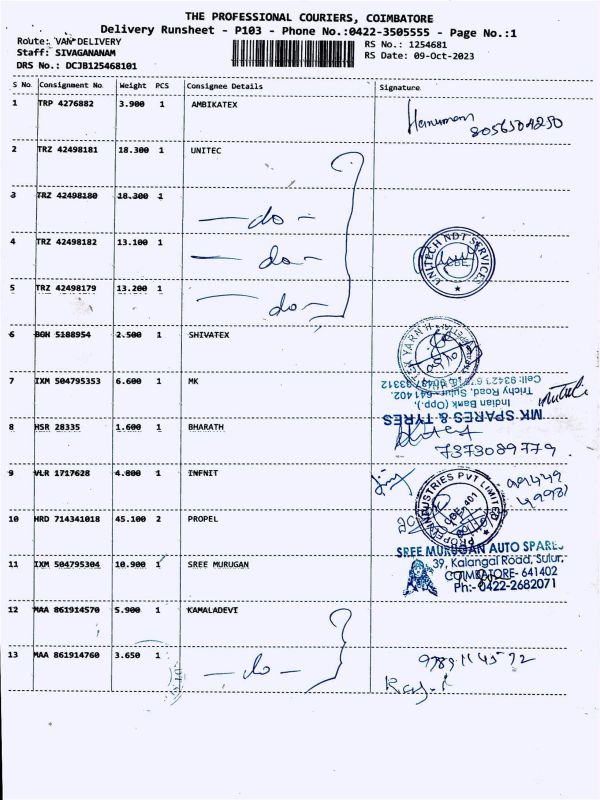 THE PROFESSIONAL COURIERS, COIMBATORE
Delivery Runsheet - P103 - Phone No.:0422-3505555 - Page No.:1
Route: VAN DELIVERY
Staff: SIVAGANANAM
DRS No.: DCJB125468101
RS No.: 1254681
RS Date: 09-Oct-2023
S No. Consignment No. Weight PCS Consignee Details Signature
1 TRP 4276882 3.900 1 AMBIKATEX
Hanuman
8056504250
2 TRZ 42498181 18.300 1 UNITEC
3 TRZ 42498180 18.300 1
— do —
4 TRZ 42498182 13.100 1
— do —
UNITECH NDT SERVICES
CBE
5 TRZ 42498179 13.200 1
— do —
6 BGH 5188954 2.500 1 SHIVATEX
7 IXM 504795353 6.600 1 MK
MK SPARES & TYRES
Indian Bank (Opp.),
Trichy Road, Sulur - 641 402.
8 HSR 28335 1.600 1 BHARATH
7373089779
9 VLR 1717628 4.800 1 INFNIT
10 HRD 714341018 45.100 2 PROPEL
INDUSTRIES PVT LIMITED
11 IXM 504795304 10.900 1 SREE MURUGAN
SREE MURUGAN AUTO SPARES
39, Kalangal Road, Sulur,
COIMBATORE- 641402
Ph:- 0422-2682071
12 MAA 861914570 5.900 1 KAMALADEVI
13 MAA 861914760 3.650 1
— do —